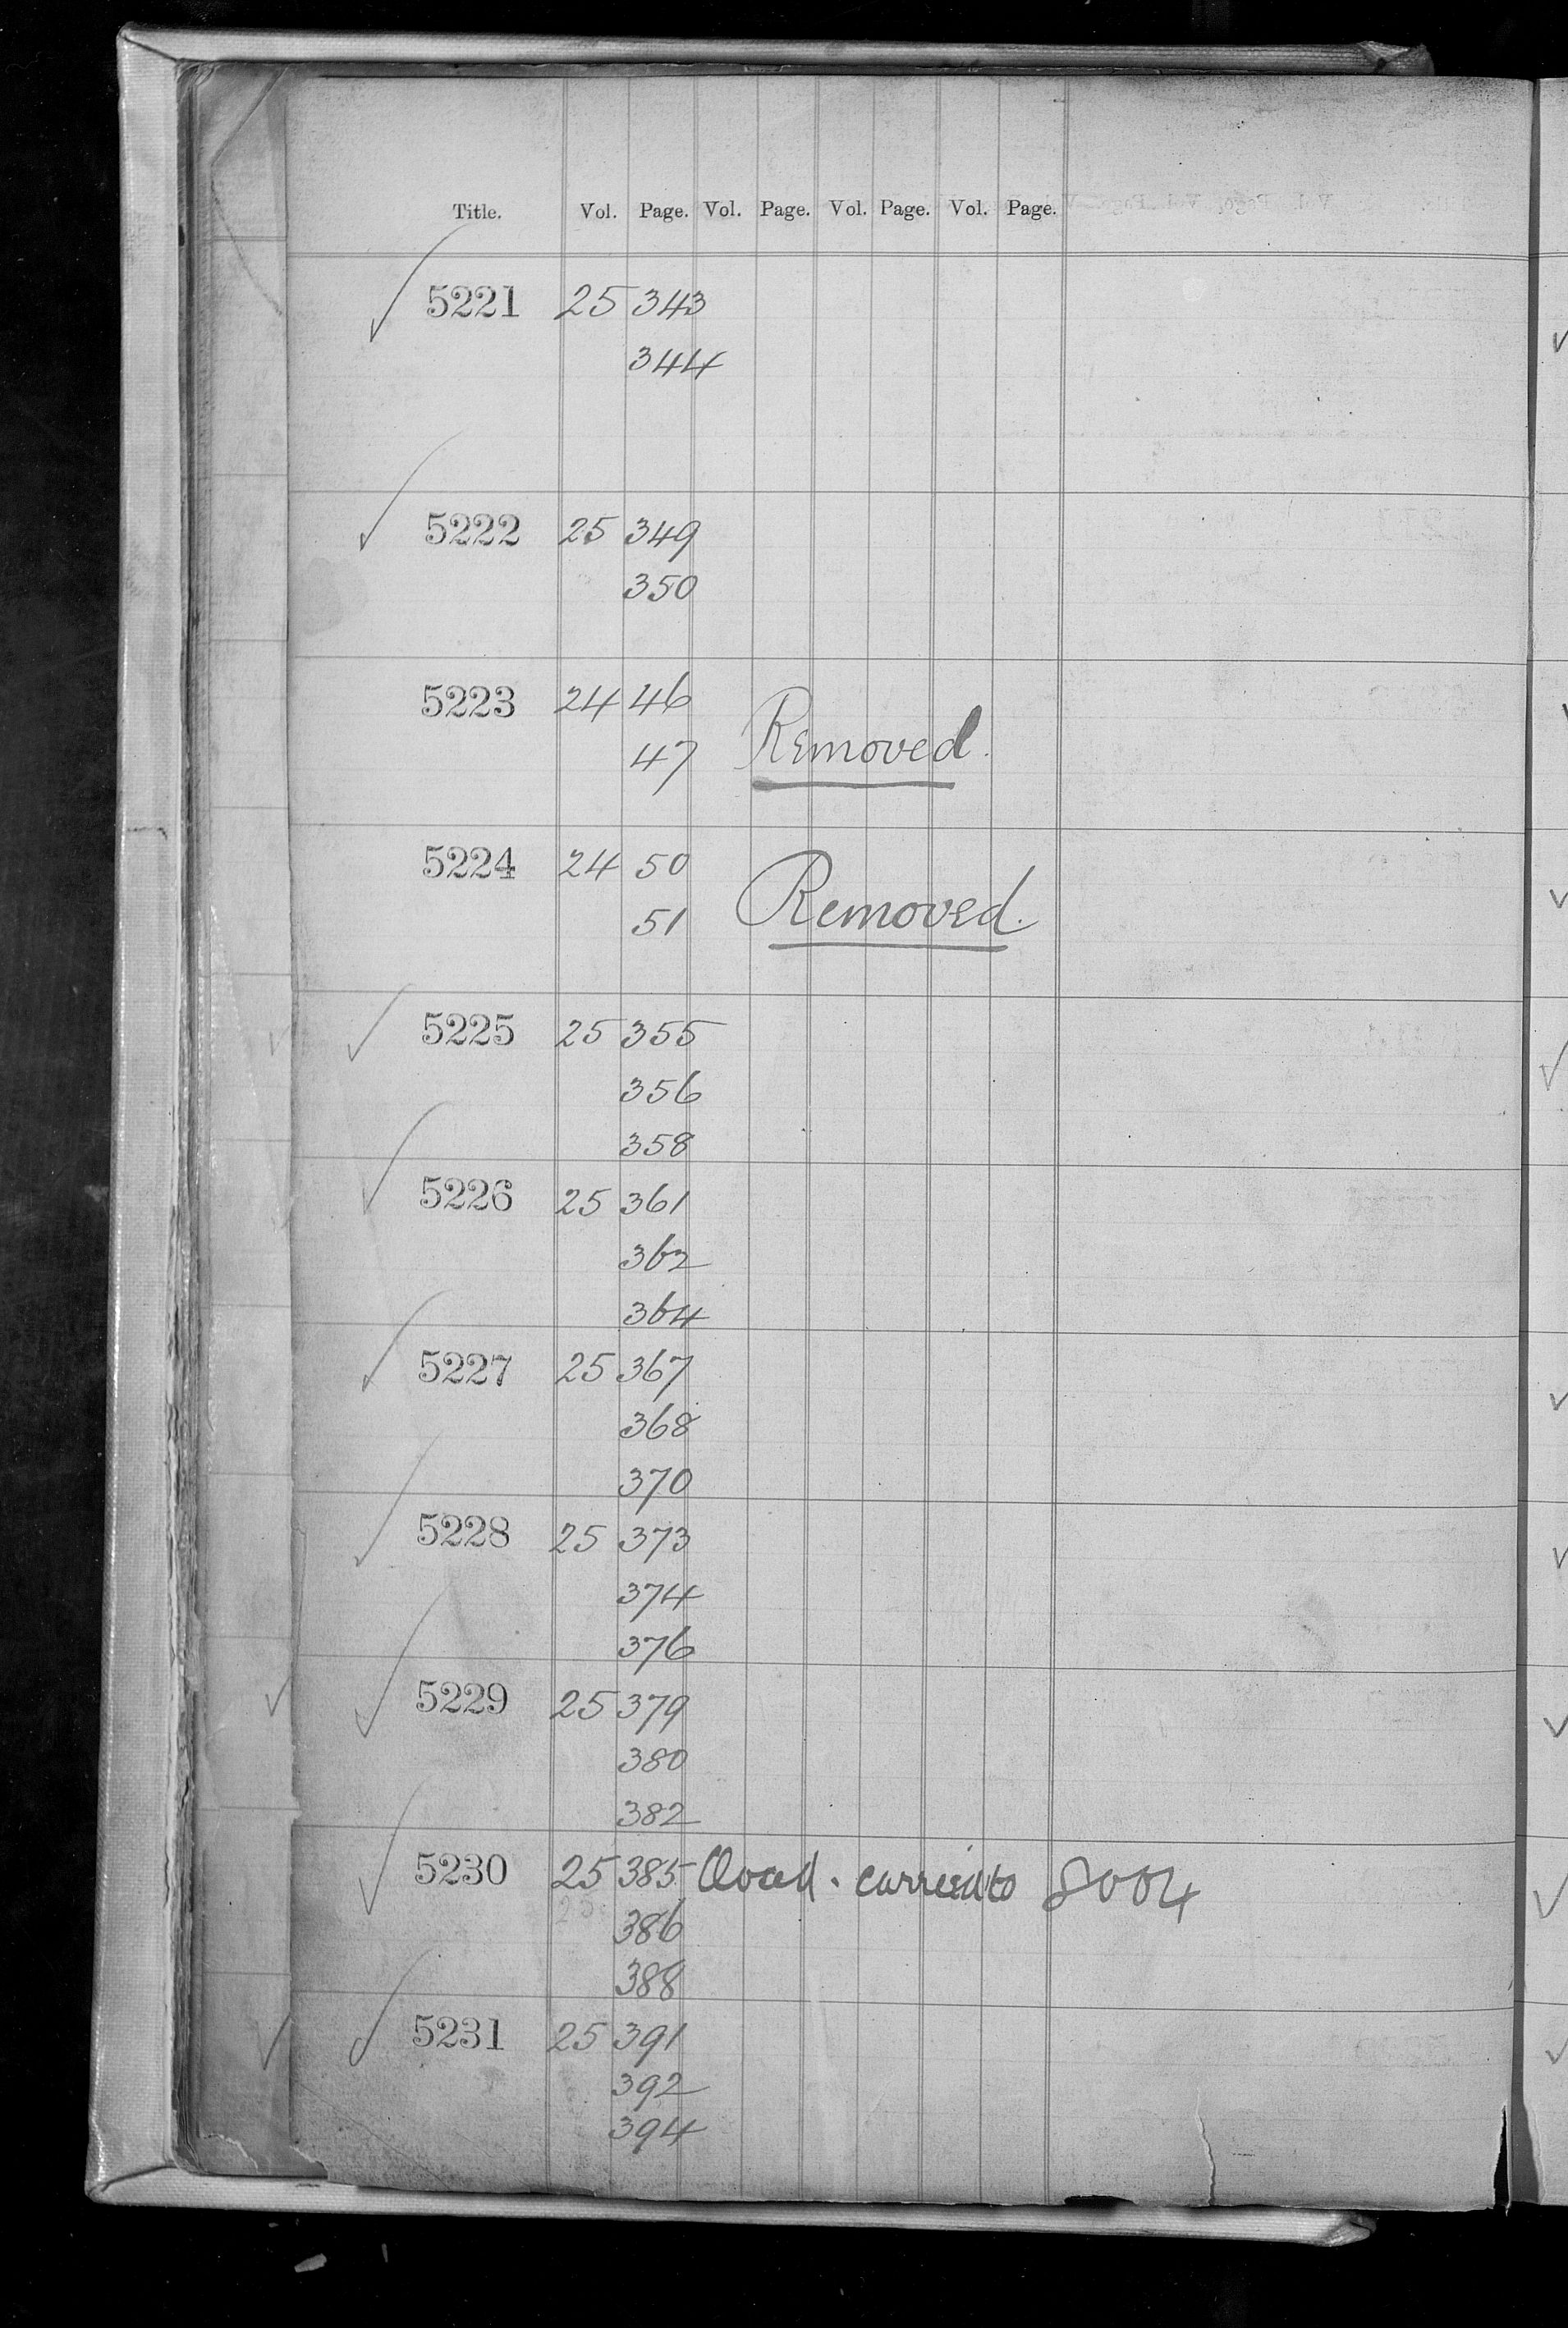 Title. Vol. Page. Vol. Page. Vol. Page. Vol. Page.
✓ 5221 25 343
344
✓ 5222 25 349
350
5223 24 46
47 Removed.
5224 24 50
51 Removed.
✓ 5225 25 355
356
358
✓ 5226 25 361
362
364
✓ 5227 25 367
368
370
✓ 5228 25 373
374
376
✓ 5229 25 379
380
382
✓ 5230 25 385 carried to 8004
386
388
✓ 5231 25 391
392
394